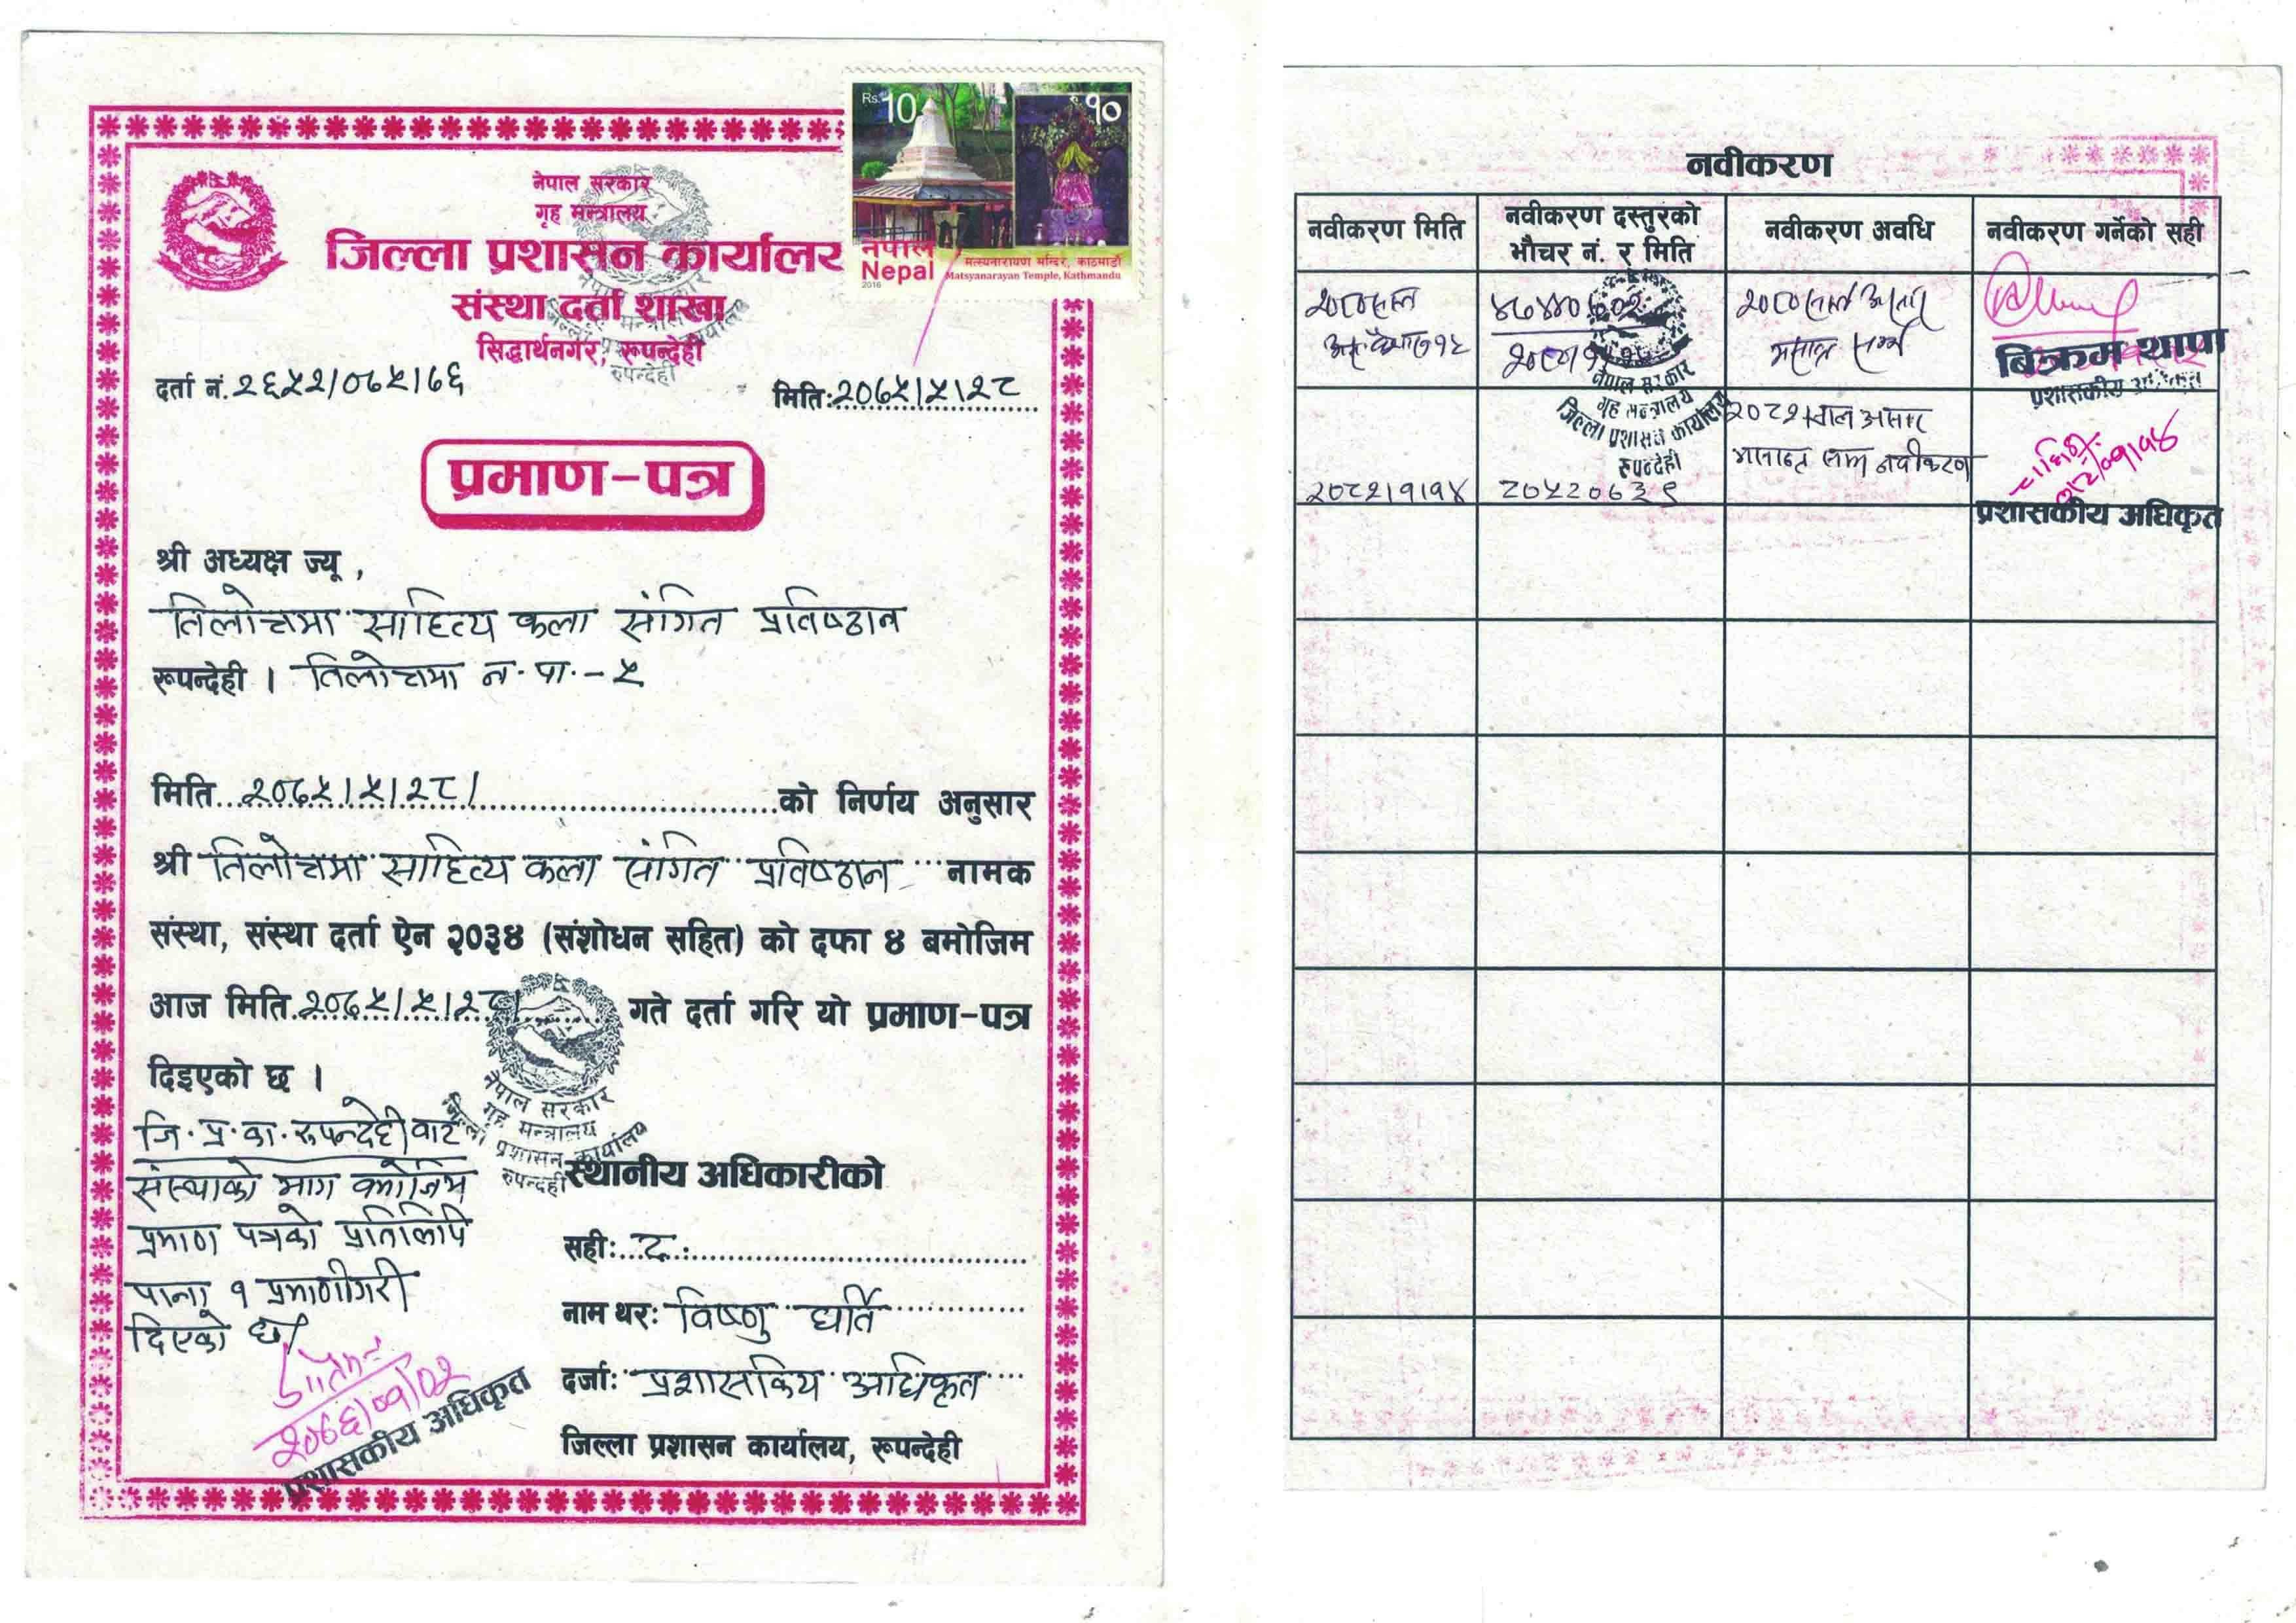 नेपाल सरकार
गृह मन्त्रालय
जिल्ला प्रशासन कार्यालय
संस्था दर्ता शाखा
सिद्धार्थनगर, रूपन्देही
Rs. 10 १०
नेपाल
Nepal
2016
मत्स्यनारायण मन्दिर, काठमाडौं
Matsyanarayan Temple, Kathmandu
दर्ता नं. २६५२/०६५।६६
मिति: २०६५।५।२८
प्रमाण-पत्र
श्री अध्यक्ष ज्यू ,
तिलोत्तमा साहित्य कला संगित प्रतिष्ठान
रूपन्देही । तिलोत्तमा न.पा.-५
मिति २०६५।५।२८। को निर्णय अनुसार
श्री तिलोत्तमा साहित्य कला संगित प्रतिष्ठान नामक
संस्था, संस्था दर्ता ऐन २०३४ (संशोधन सहित) को दफा ४ बमोजिम
आज मिति २०६५।५।२८। गते दर्ता गरि यो प्रमाण-पत्र
दिइएको छ ।
नेपाल सरकार
गृह मन्त्रालय
जिल्ला प्रशासन कार्यालय
रुपन्देही
जि.प्र.का. रुपन्देही बाट
संस्थाको माग बमोजिम
प्रमाण पत्रको प्रतिलिपि
पाना १ प्रमाणीगरी
दिएको छ।
प्रशासकीय अधिकृत
स्थानीय अधिकारीको
सही: द.
नाम थर: विष्णु घर्ति
दर्जा: प्रशासकिय अधिकृत
जिल्ला प्रशासन कार्यालय, रूपन्देही
नवीकरण
नवीकरण मिति
नवीकरण दस्तुरको भौचर नं. र मिति
नवीकरण अवधि
नवीकरण गर्नेको सही
बिक्रम थापा
प्रशासकीय अधिकृत
नेपाल सरकार
गृह मन्त्रालय
जिल्ला प्रशासन कार्यालय
रुपन्देही
२०८२।१।१४
८०५२०६३९
२०८२ साल असार
मसान्त सम्म नवीकरण
प्रशासकीय अधिकृत